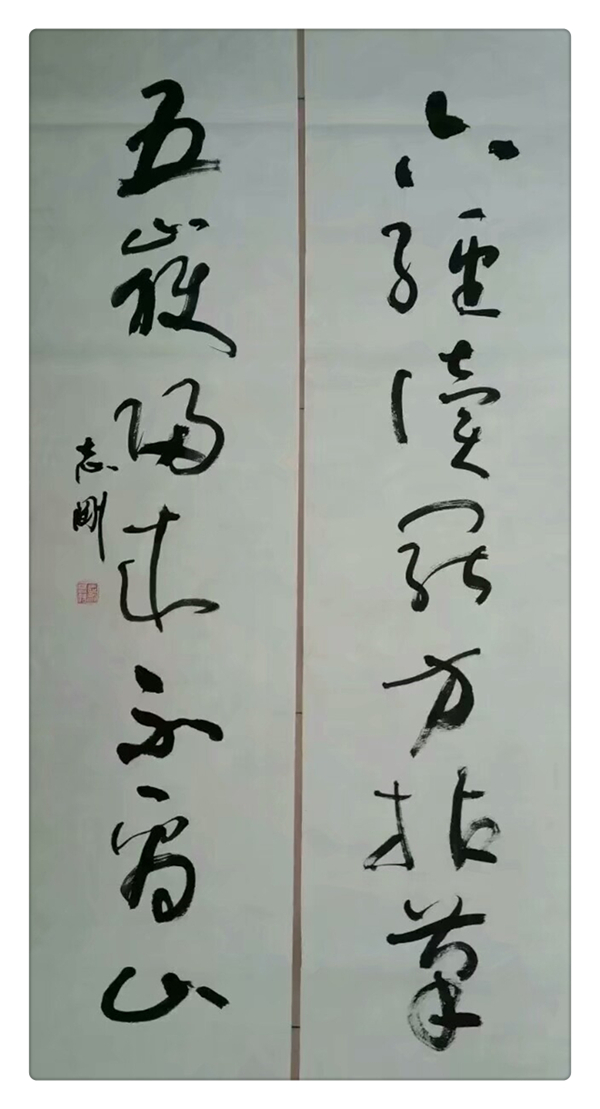 六經讀罷方拈筆
五嶽歸來不看山
志剛